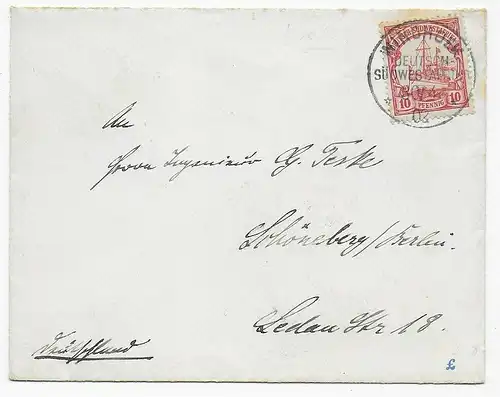 WINDHUK
DEUTSCH-
SÜDWESTAFRIKA
02
10 PFENNIG 10
An
Herrn Ingenieur G. Teske
Schöneberg/Berlin.
Sedan Str 18.
Deutschland
£